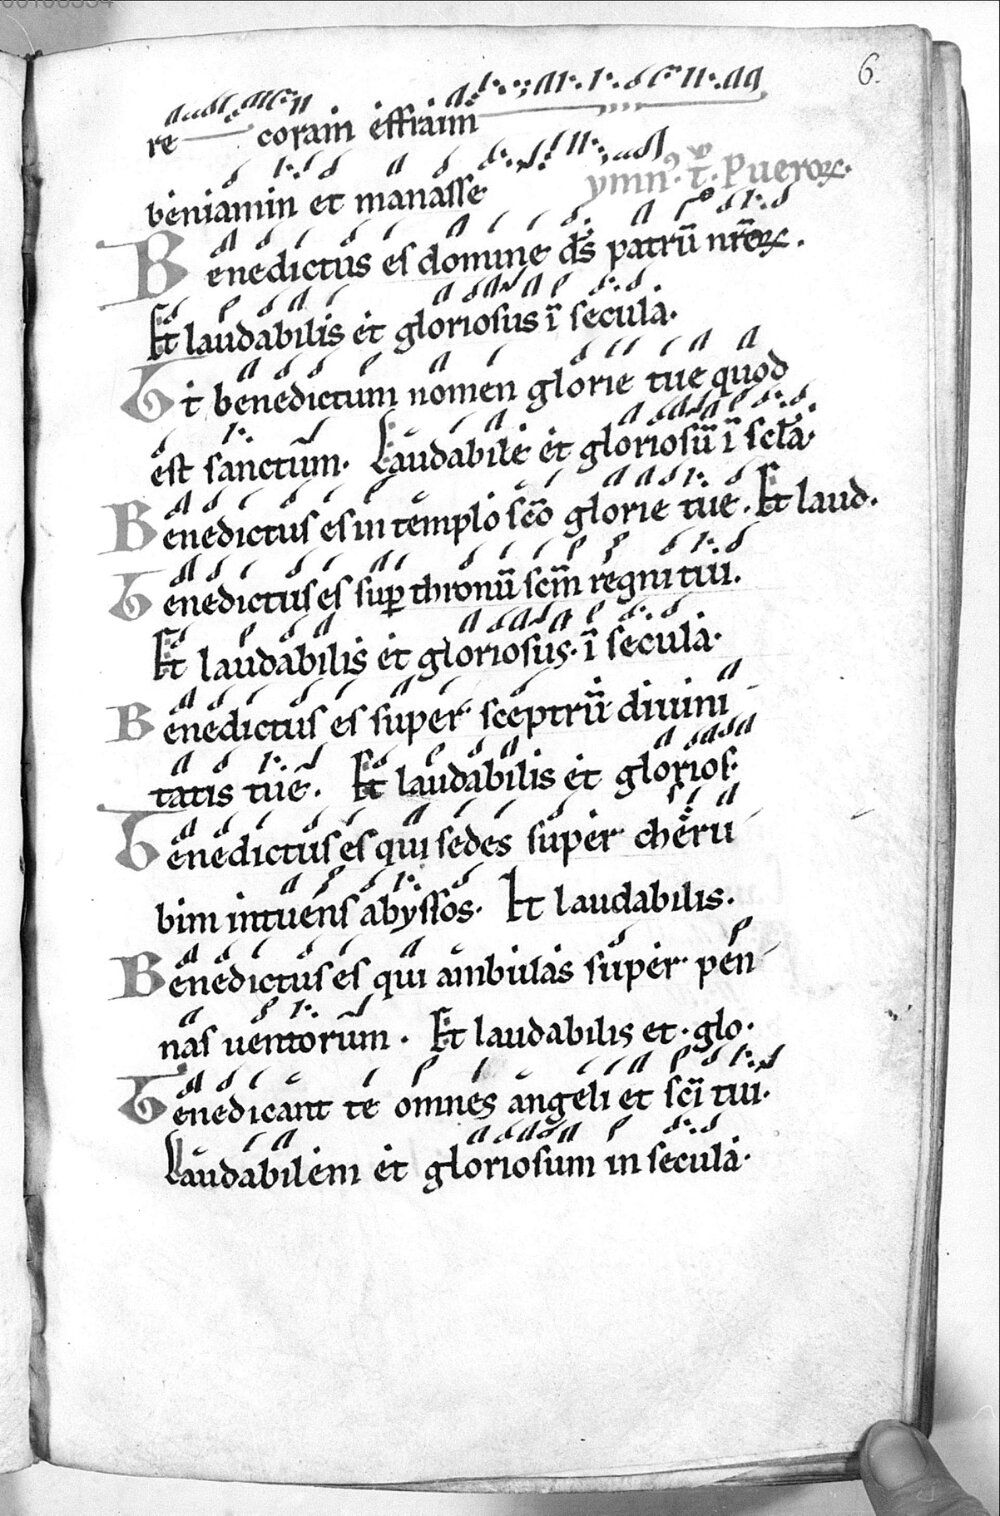 6.
re coram effraim
beniamin et manasse ymn̄. t̄. Pueroꝝ.
Benedictus es domine ds̄ patrū nr̄oꝝ.
Et laudabilis et gloriosus ī secula.
Et benedictum nomen glorie tue quod
est sanctum. Laudabile et gloriosū ī scła.
Benedictus es in templo scō glorie tue. Et laud.
Benedictus es suꝑ thronū scm̄ regni tui.
Et laudabilis et gloriosus. ī secula.
Benedictus es super sceptrū diuini
tatis tue. Et laudabilis et glorios.
Benedictus es qui sedes super cheru
bim intuens abyssos. Et laudabilis.
Benedictus es qui ambulas super pen
nas uentorum. Et laudabilis et. glo.
Benedicant te omnes angeli et scī tui.
Laudabilem et gloriosum in secula.